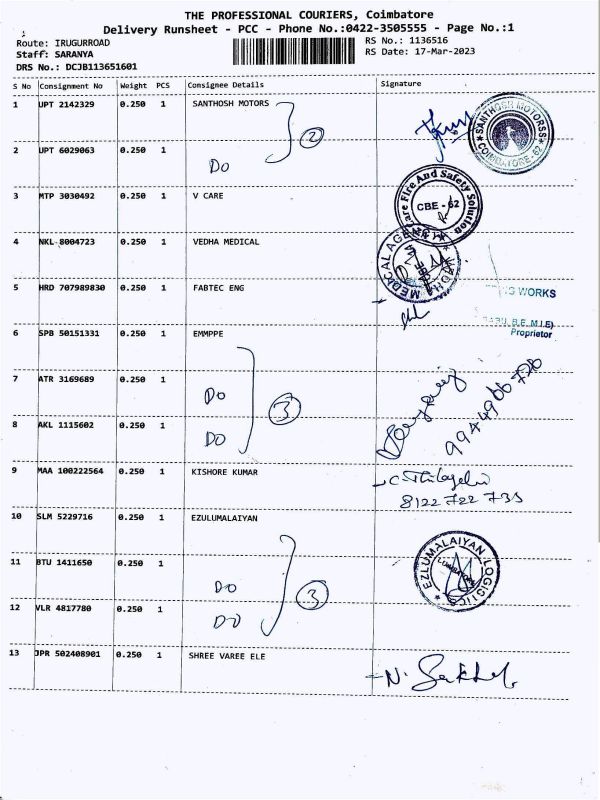 THE PROFESSIONAL COURIERS, Coimbatore
Delivery Runsheet - PCC - Phone No.:0422-3505555 - Page No.:1
Route: IRUGURROAD RS No.: 1136516
Staff: SARANYA RS Date: 17-Mar-2023
DRS No.: DCJB113651601
S No Consignment No Weight PCS Consignee Details Signature
1 UPT 2142329 0.250 1 SANTHOSH MOTORS
SANTHOSH MOTORSS
COIMBATORE-62
2
2 UPT 6029063 0.250 1 DO
3 MTP 3030492 0.250 1 V CARE
Care Fire And Safety Solution
CBE - 62
4 NKL 8004723 0.250 1 VEDHA MEDICAL
MEDACAL AGE
5 HRD 707989830 0.250 1 FABTEC ENG
WORKS
B.E. M.I.E)
Proprietor
6 SPB 50151331 0.250 1 EMMPPE
7 ATR 3169689 0.250 1 DO
3
8 AKL 1115602 0.250 1 DO
9 MAA 100222564 0.250 1 KISHORE KUMAR
8122 722 733
10 SLM 5229716 0.250 1 EZULUMALAIYAN
EZLUMALAIYAN LOGISTICS
11 BTU 1411650 0.250 1 DO
3
12 VLR 4817780 0.250 1 DO
13 JPR 502408901 0.250 1 SHREE VAREE ELE